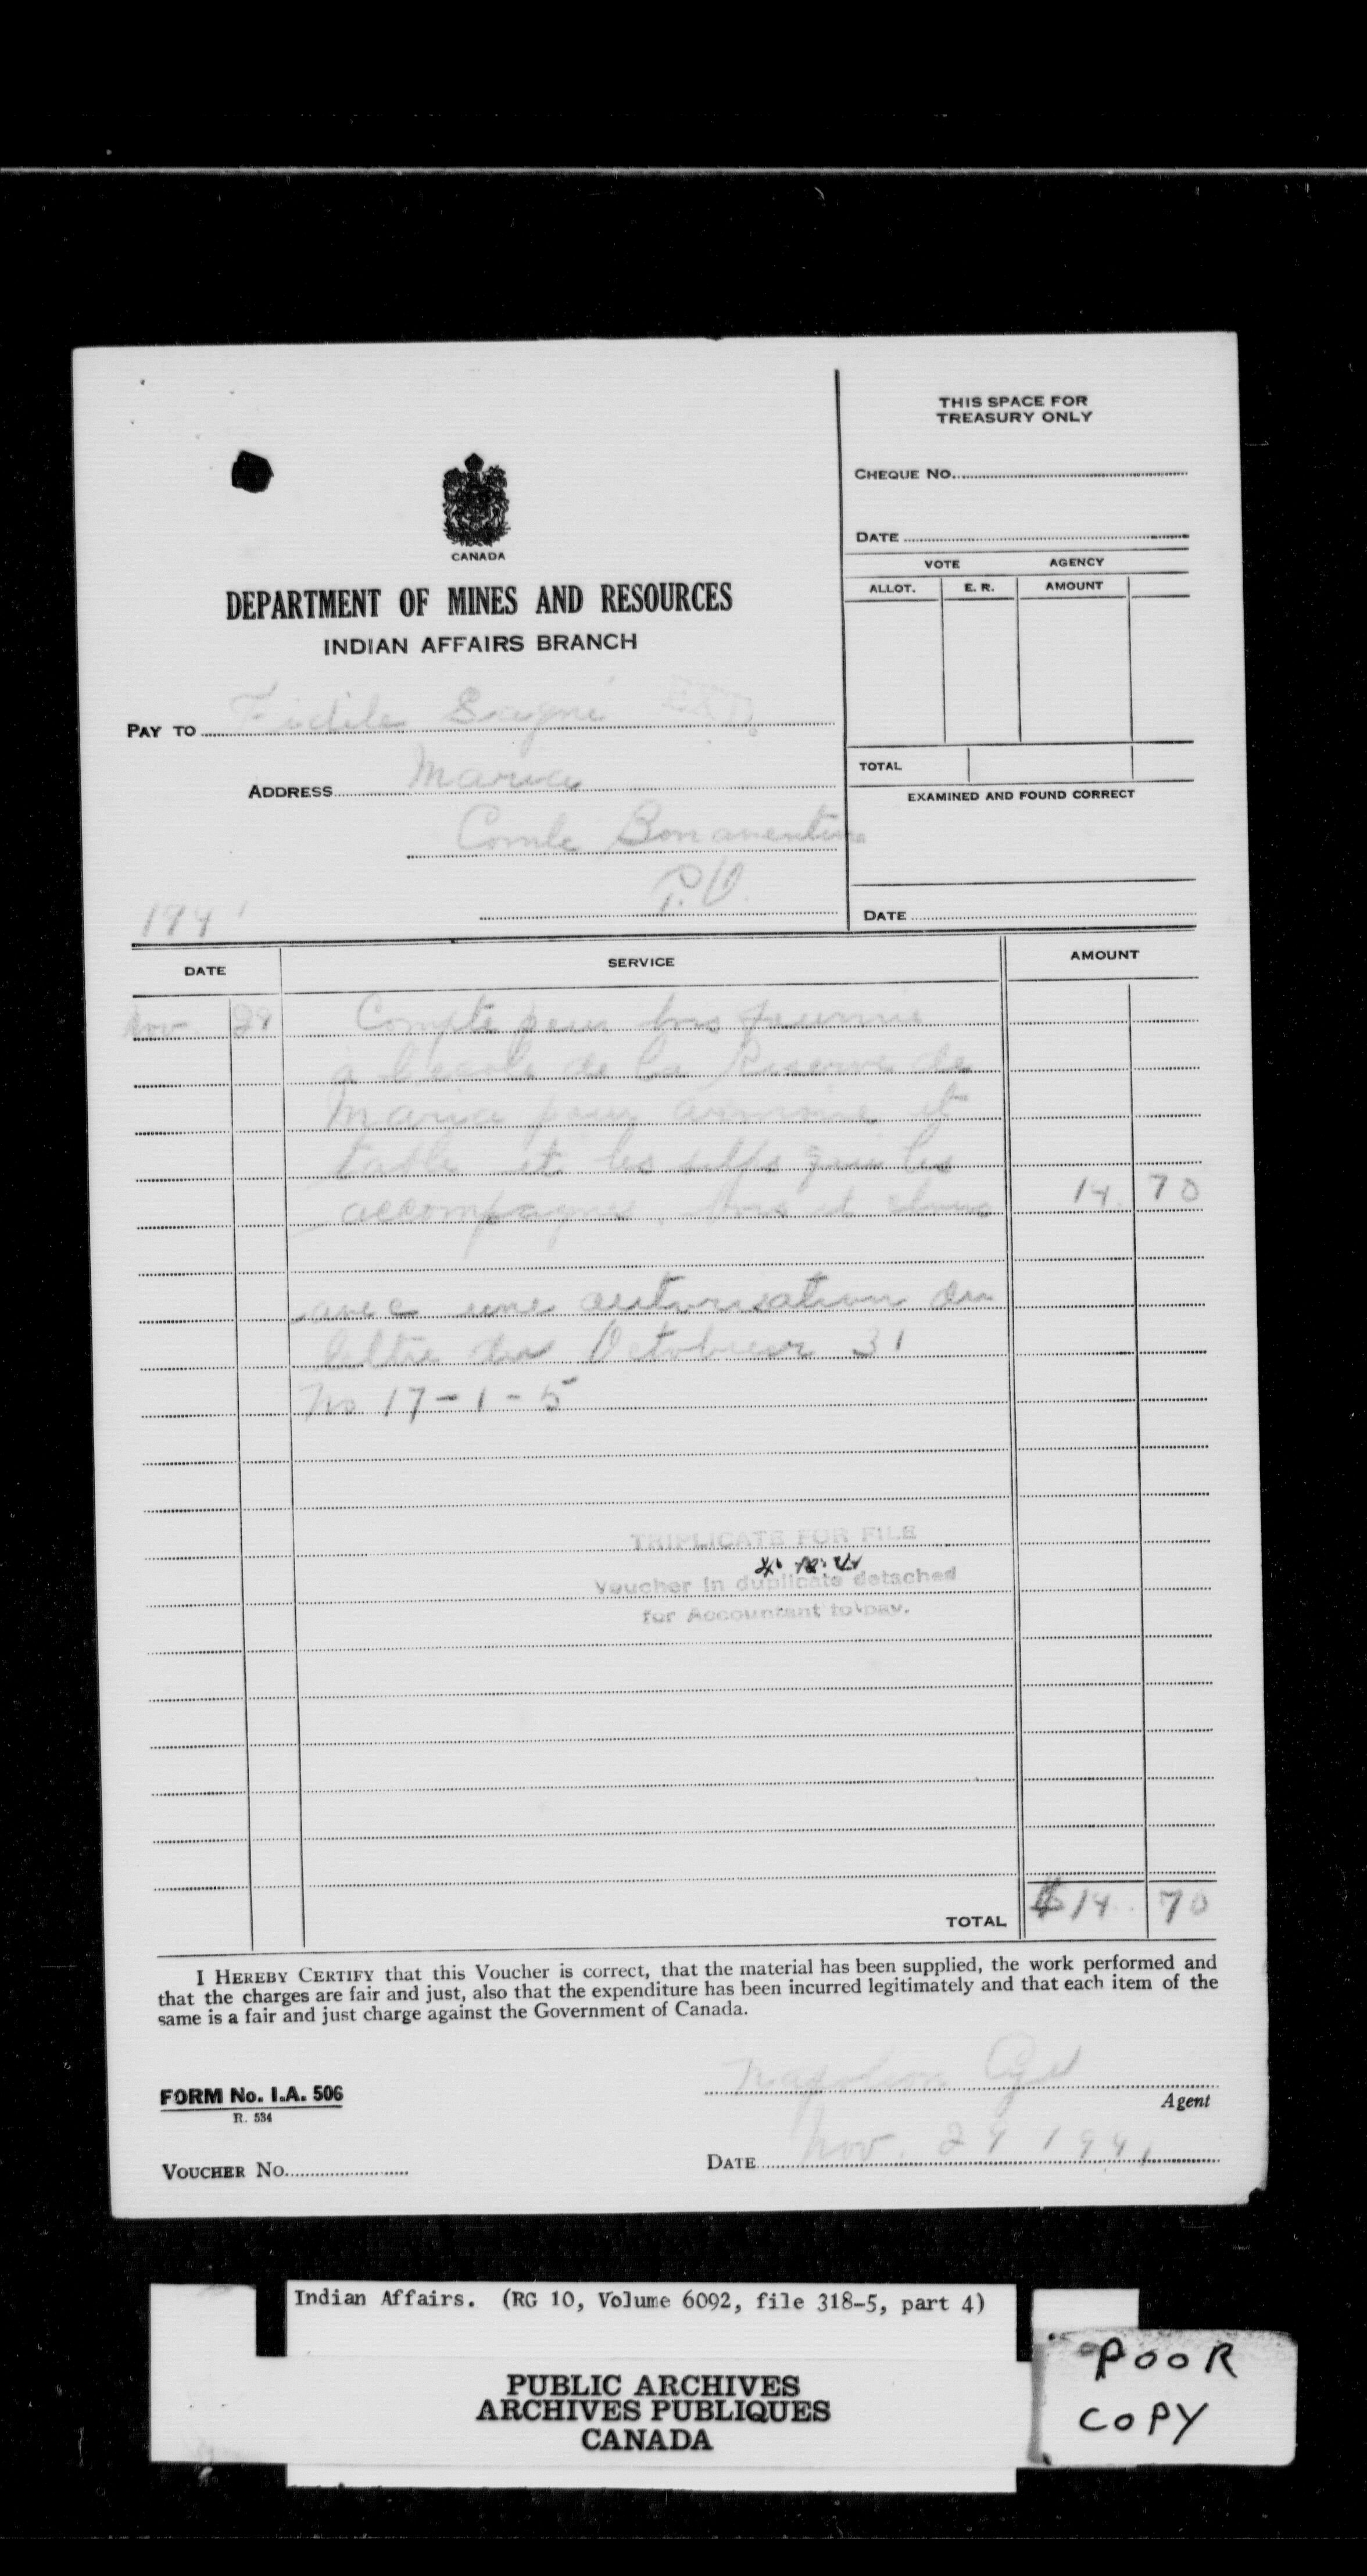 THIS SPACE FOR
TREASURY ONLY
CHEQUE NO.
DATE
VOTE AGENCY
ALLOT. E. R. AMOUNT
TOTAL
EXAMINED AND FOUND CORRECT
DATE
CANADA
DEPARTMENT OF MINES AND RESOURCES
INDIAN AFFAIRS BRANCH
PAY TO Fidile
ADDRESS Maria
Comte Bonaventure
P.Q.
1941
DATE SERVICE AMOUNT
Nov. 29 Compte pour bois fournie
a l'ecole de la Reserve de
Maria pour armoire et
table et les qui les
accompagne, bois et 14. 70
avec une autorisation du
lettre du Octobuer 31
No 17-1-5
TRIPLICATE FOR FILE
Voucher in duplicate detached
for Accountant to pay.
TOTAL $14. 70
I HEREBY CERTIFY that this Voucher is correct, that the material has been supplied, the work performed and
that the charges are fair and just, also that the expenditure has been incurred legitimately and that each item of the
same is a fair and just charge against the Government of Canada.
Napoleon Cyr
Agent
FORM No. I.A. 506
R. 534
VOUCHER No.
DATE Nov. 29 1941
Indian Affairs. (RG 10, Volume 6092, file 318-5, part 4)
PUBLIC ARCHIVES
ARCHIVES PUBLIQUES
CANADA
POOR
COPY